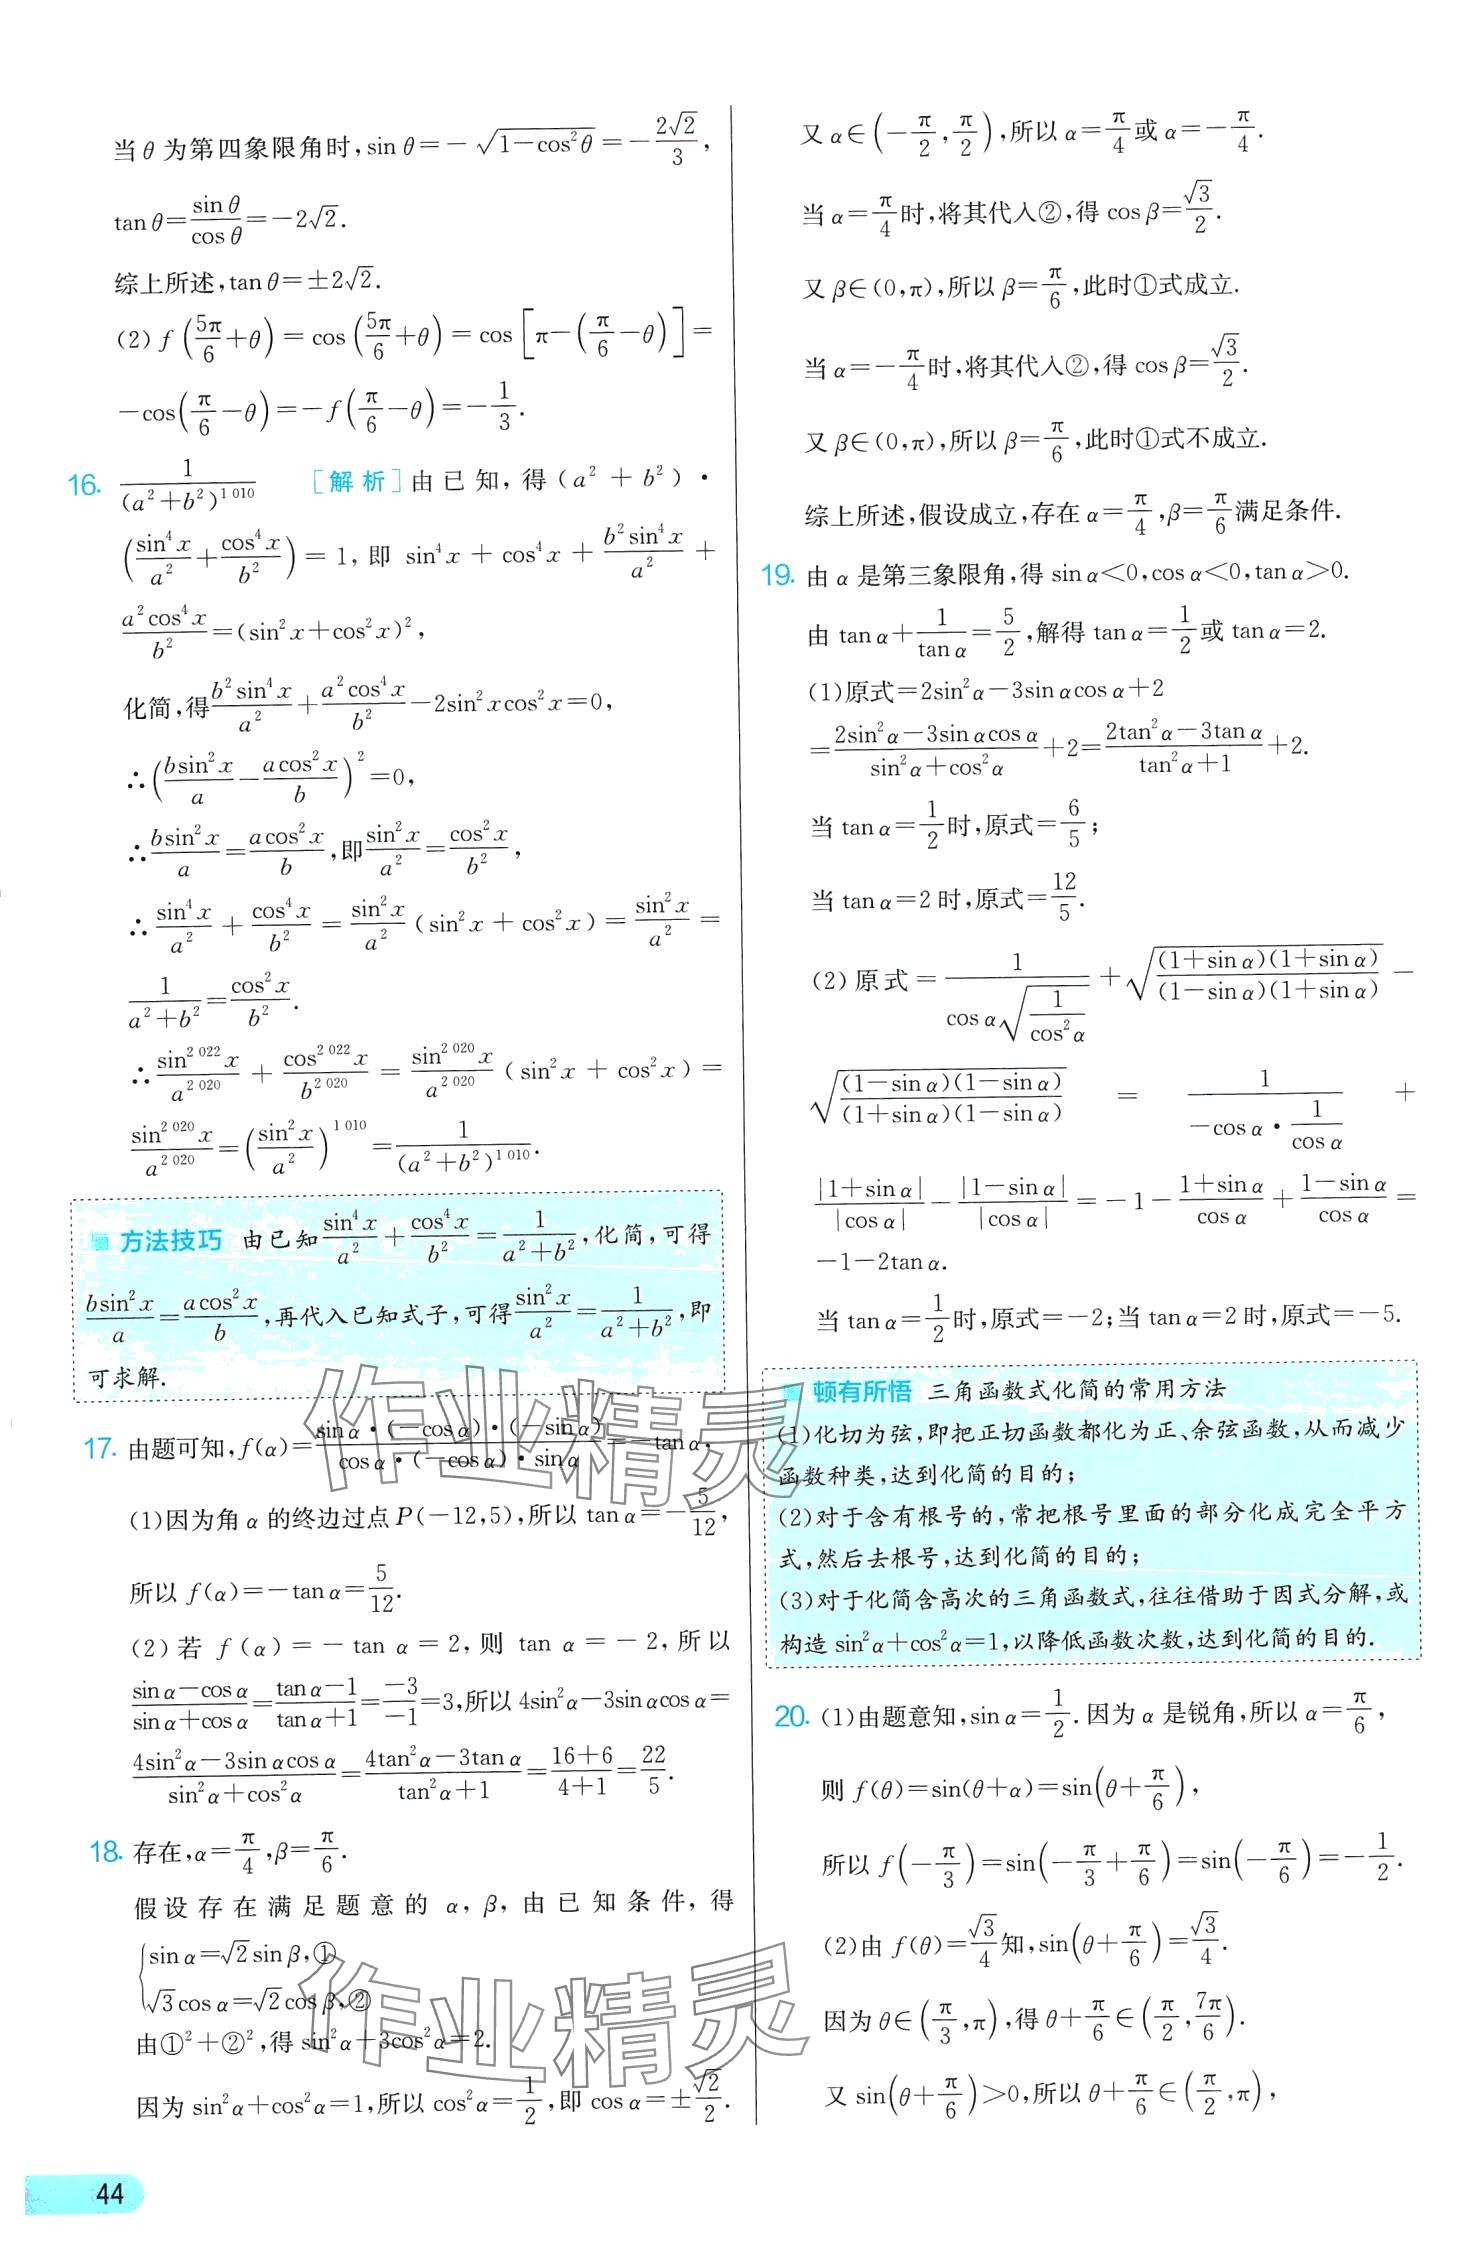 当θ为第四象限角时,sin θ=-√(1-cos²θ)=-2√2/3,
tan θ=sin θ/cos θ=-2√2.
综上所述,tan θ=±2√2.
(2) f(5π/6+θ)=cos(5π/6+θ)=cos[π-(π/6-θ)]=
-cos(π/6-θ)=-f(π/6-θ)=-1/3.
16. 1/(a²+b²)^(1 010) [解析]由已知,得(a²+b²)·
(sin⁴x/a²+cos⁴x/b²)=1,即 sin⁴x+cos⁴x+b²sin⁴x/a²+
a²cos⁴x/b²=(sin²x+cos²x)²,
化简,得b²sin⁴x/a²+a²cos⁴x/b²-2sin²xcos²x=0,
∴(bsin²x/a-acos²x/b)²=0,
∴bsin²x/a=acos²x/b,即sin²x/a²=cos²x/b²,
∴sin⁴x/a²+cos⁴x/b²=sin²x/a²(sin²x+cos²x)=sin²x/a²=
1/(a²+b²)=cos²x/b².
∴sin^(2 022)x/a^(2 020)+cos^(2 022)x/b^(2 020)=sin^(2 020)x/a^(2 020)(sin²x+cos²x)=
sin^(2 020)x/a^(2 020)=(sin²x/a²)^(1 010)=1/(a²+b²)^(1 010).
方法技巧 由已知sin⁴x/a²+cos⁴x/b²=1/(a²+b²),化简,可得
bsin²x/a=acos²x/b,再代入已知式子,可得sin²x/a²=1/(a²+b²),即
可求解.
17. 由题可知,f(α)=sin α·(-cos α)·(-sin α)/(cos α·(-cos α)·sin α)=-tan α.
(1)因为角α的终边过点P(-12,5),所以tan α=-5/12,
所以f(α)=-tan α=5/12.
(2)若f(α)=-tan α=2,则tan α=-2,所以
(sin α-cos α)/(sin α+cos α)=(tan α-1)/(tan α+1)=-3/-1=3,所以4sin²α-3sin αcos α=
(4sin²α-3sin αcos α)/(sin²α+cos²α)=(4tan²α-3tan α)/(tan²α+1)=(16+6)/(4+1)=22/5.
18. 存在,α=π/4,β=π/6.
假设存在满足题意的α,β,由已知条件,得
{sin α=√2sin β,①
√3cos α=√2cos β,②
由①²+②²,得sin²α+3cos²α=2.
因为sin²α+cos²α=1,所以cos²α=1/2,即cos α=±√2/2.
又α∈(-π/2,π/2),所以α=π/4或α=-π/4.
当α=π/4时,将其代入②,得cos β=√3/2.
又β∈(0,π),所以β=π/6,此时①式成立.
当α=-π/4时,将其代入②,得cos β=√3/2.
又β∈(0,π),所以β=π/6,此时①式不成立.
综上所述,假设成立,存在α=π/4,β=π/6满足条件.
19. 由α是第三象限角,得sin α<0,cos α<0,tan α>0.
由tan α+1/tan α=5/2,解得tan α=1/2或tan α=2.
(1)原式=2sin²α-3sin αcos α+2
=(2sin²α-3sin αcos α)/(sin²α+cos²α)+2=(2tan²α-3tan α)/(tan²α+1)+2.
当tan α=1/2时,原式=6/5;
当tan α=2时,原式=12/5.
(2)原式=1/(cos α√(1/cos²α))+√((1+sin α)(1+sin α)/((1-sin α)(1+sin α)))-
√((1-sin α)(1-sin α)/((1+sin α)(1-sin α)))=1/(-cos α·1/cos α)+
|1+sin α|/|cos α|-|1-sin α|/|cos α|=-1-(1+sin α)/cos α+(1-sin α)/cos α=
-1-2tan α.
当tan α=1/2时,原式=-2;当tan α=2时,原式=-5.
顿有所悟 三角函数式化简的常用方法
(1)化切为弦,即把正切函数都化为正、余弦函数,从而减少
函数种类,达到化简的目的;
(2)对于含有根号的,常把根号里面的部分化成完全平方
式,然后去根号,达到化简的目的;
(3)对于化简含高次的三角函数式,往往借助于因式分解,或
构造sin²α+cos²α=1,以降低函数次数,达到化简的目的.
20. (1)由题意知,sin α=1/2.因为α是锐角,所以α=π/6,
则f(θ)=sin(θ+α)=sin(θ+π/6),
所以f(-π/3)=sin(-π/3+π/6)=sin(-π/6)=-1/2.
(2)由f(θ)=√3/4知,sin(θ+π/6)=√3/4.
因为θ∈(π/3,π),得θ+π/6∈(π/2,7π/6).
又sin(θ+π/6)>0,所以θ+π/6∈(π/2,π),
44
作业精灵
作业精灵